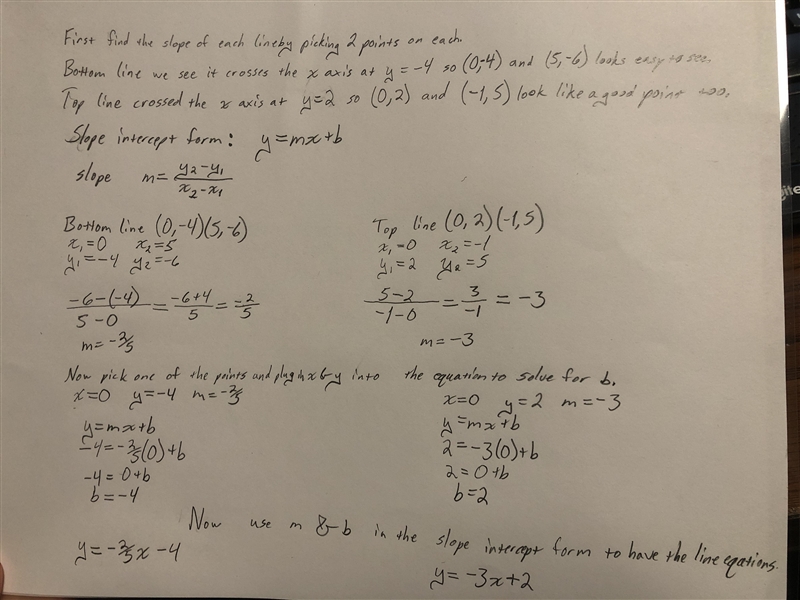 First find the slope of each line by picking 2 points on each.
Bottom line we see it crosses the x axis at y = -4 so (0,-4) and (5,-6) looks easy to see.
Top line crossed the x axis at y=2 so (0,2) and (-1,5) look like a good point too.
Slope intercept form: y=mx+b
slope m= y₂-y₁/x₂-x₁
Bottom line (0,-4)(5,-6)
x₁=0 x₂=5
y₁=-4 y₂=-6
-6-(-4)/5-0 = -6+4/5 = -2/5
m=-2/5
Top line (0,2)(-1,5)
x₁=0 x₂=-1
y₁=2 y₂=5
5-2/-1-0 = 3/-1 = -3
m=-3
Now pick one of the points and plug in x & y into the equation to solve for b.
x=0 y=-4 m=-2/5
y=mx+b
-4=-2/5(0)+b
-4=0+b
b=-4
x=0 y=2 m=-3
y=mx+b
2=-3(0)+b
2=0+b
b=2
Now use m & b in the slope intercept form to have the line eqations.
y=-2/5x-4
y=-3x+2